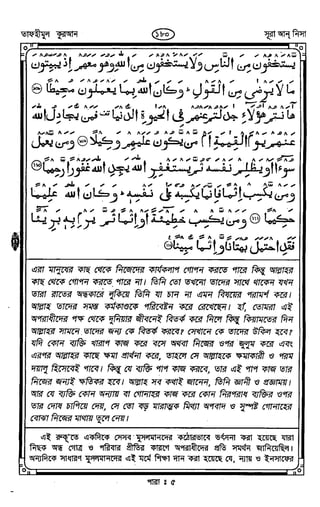 তাফহীমুল কুরআন
১৮৩
সূরা আন্ নিসা
يستخفون من الناس ولا يستخفون من الله وهو معهم إذ يبيتون
ما لا يرضى من القول وكان الله بما يعملون محيطا
هانتم هؤلاء جدلتم عنهم في الحيوة الدنيا فمن يجادل الله
عنهم يوم القيمة أم من يكون عليهم وكيلا ومن يعمل
سوءا أو يظلم نفسه ثم يستغفر الله يجد الله غفورا رحيما
ومن يكسب إثما فإنما يكسبه على نفسه وكان الله عليما
حكيما ومن يكسب خطيئة أو إثما ثم يرم به بريئا
فقد احتمل بهتانا وإثما مبينا
এরা মানুষের কাছ থেকে নিজেদের কার্যকলাপ গোপন করতে পারে কিন্তু আল্লাহর
কাছ থেকে গোপন করতে পারে না। তিনি তো তখনো তাদের সাথে থাকেন যখন
তারা রাতের অন্ধকারে লুকিয়ে তিনি যা চান না এমন বিষয়ের পরামর্শ করে।
আল্লাহ তাদের সমস্ত কর্মকাণ্ডকে পরিবেষ্টন করে রেখেছেন। হাঁ, তোমরা এই
অপরাধীদের পক্ষ থেকে দুনিয়ার জীবনেই বিতর্ক করে নিলে কিন্তু কিয়ামতের দিন
আল্লাহর সামনে তাদের জন্য কে বিতর্ক করবে? সেখানে কে তাদের উকিল হবে?
যদি কোন ব্যক্তি খারাপ কাজ করে বসে অথবা নিজের ওপর জুলুম করে এবং
এরপর আল্লাহর কাছে ক্ষমা প্রার্থনা করে, তাহলে সে আল্লাহকে ক্ষমাকারী ও পরম
দয়ালু হিসেবেই পাবে। কিন্তু যে ব্যক্তি পাপ কাজ করবে, তার এই পাপ কাজ তার
নিজের জন্যই ক্ষতিকর হবে। আল্লাহ সব কথাই জানেন, তিনি জ্ঞানী ও প্রজ্ঞাময়।
আর যে ব্যক্তি কোন অন্যায় বা গোনাহর কাজ করে কোন নিরপরাধ ব্যক্তির ওপর
তার দোষ চাপিয়ে দেয়, সে তো বড় মারাত্মক মিথ্যা অপবাদ ও সুস্পষ্ট গোনাহের
বোঝা নিজের মাথায় তুলে নেয়।
এই রুকূ'তে একদিকে সেসব মুসলমানদের কঠোরভাবে ভর্ৎসনা করা হয়েছে যারা
নিছক অন্ধ গোত্র ও পরিবার প্রীতির কারণে অপরাধীদের প্রতি সমর্থন জানিয়েছিল।
অন্যদিকে সাধারণ মুসলমানদের এই মর্মে শিক্ষা দান করা হয়েছে যে, ন্যায় ও ইনসাফের
পারা : ৫